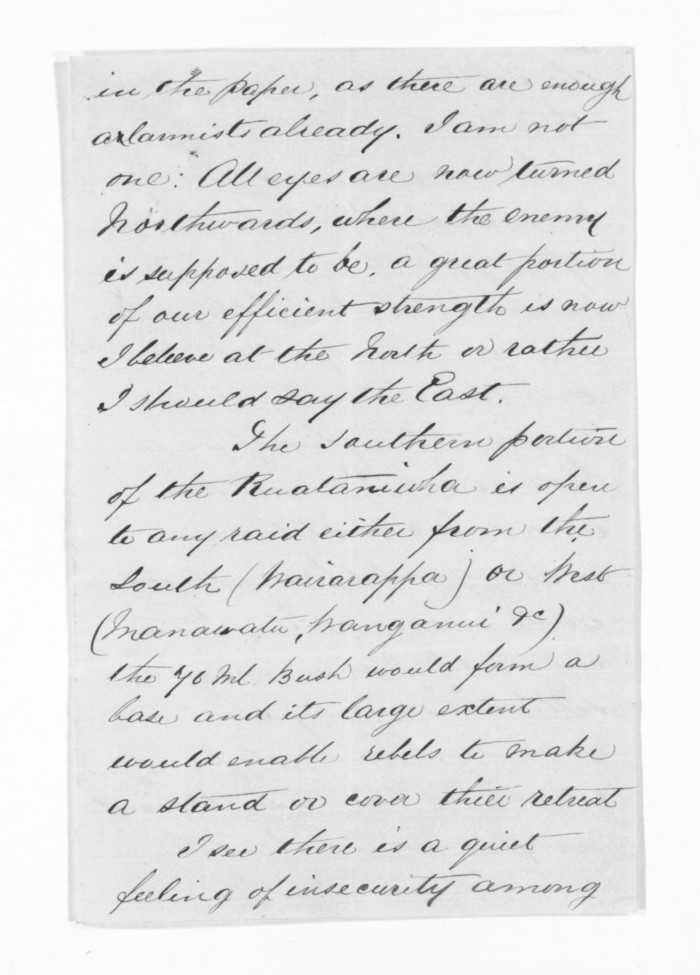 in the paper, as there are enough
alarmists already. I am not
one: All eyes are now turned
Northwards, where the enemy
is supposed to be, a great portion
of our efficient strength is now
I beleve at the North or rather
I should say the East.
The Southern portion
of the Ruataniwha is open
to any raid either from the
South (Wairarappa) or West
(Manawatu, Wanganui &c)
the 70 Ml. Bush would form a
base and its large extent
would enable rebels to make
a stand or cover their retreat
I see there is a quiet
feeling of insecurity among